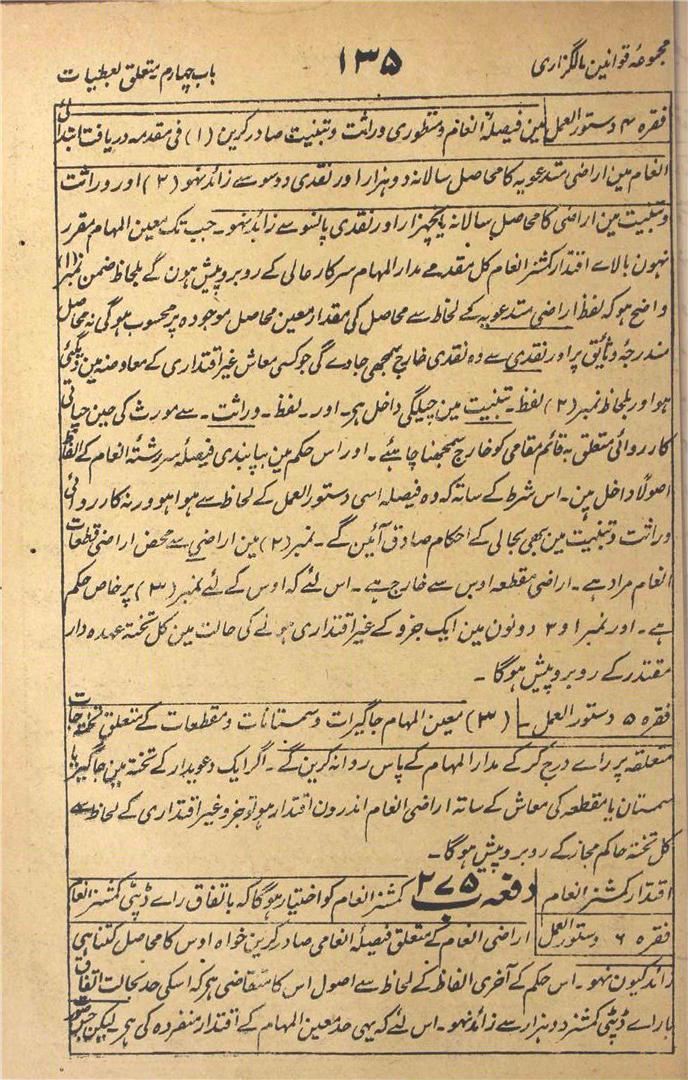 مجموعۂ قوانین مالگزاری
۱۳۵
باب چہارم متعلق بعطیات
فقرہ ۴ دستور العمل مین فیصلۂ انعام و منظوری وراثت و تبنیت صادر کرین (۱) فی مقدمہ دریافت ابتدائی
انعام مین اراضی متدعویہ کا محاصل سالانہ دو ہزار اور نقدی دوسو سے زائد نہو (۲) اور وراثت
و تبنیت مین اراضی کا محاصل سالانہ پانچہزار اور نقدی پانسو سے زائد نہو۔ جب تک معین المہام مقرر
نہون بالاے اقتدار کمشنر انعام کل مقدمے مدار المہام سرکار عالی کے روبرو پیش ہون گے بلحاظ ضمن نمبر (۱)
واضح ہو کہ لفظ اراضی متدعویہ کے لحاظ سے محاصل کی مقدار معین محاصل موجودہ پر محسوب ہوگی نہ محاصل
مندرجۂ وثایق پر اور نقدی سے وہ نقدی خارج سمجھی جاوے گی جو کسی معاش غیر اقتداری کے معاوضہ مین دیگئی
ہو اور بلحاظ نمبر (۲) لفظ۔ تبنیت مین چیلگی داخل ہر۔ اور۔ لفظ۔ وراثت۔ سے مورث کی حین حیاتی
کارروائی متعلق بہ قائم مقامی کو خارج سمجھنا چاہئے۔ اور اس حکم مین بپابندی فیصلۂ سررشتۂ انعام کے الفاظ
اصولاً داخل ہین۔ اس شرط کے ساتہ کہ وہ فیصلہ اسی دستور العمل کے لحاظ سے ہوا ہو ورنہ کارروائی
وراثت و تبنیت مین بھی بحالی کے احکام صادق آئین گے۔ نمبر (۲) مین اراضی سے محض اراضی قطعات
انعام مراد ہے۔ اراضی مقطعہ اوس سے خارج ہے۔ اس لئے کہ اوس کے لئے نمبر (۳) پر خاص حکم
ہے۔ اور نمبر ۱ و ۲ دونون مین ایک جزو کے غیر اقتداری ہونے کی حالت مین کل تختہ عہدہ دار
مقتدر کے روبرو پیش ہوگا۔
فقرہ ۵ دستور العمل۔ (۳) معین المہام جاگیرات و سمستانات و مقطعات کے متعلق تختہ جات
متعلقہ پر راے درج کر کے مدار المہام کے پاس روانہ کرین گے۔ اگر ایک دعویدار کے تختہ مین جاگیر یا
سمستان یا مقطعہ کی معاش کے ساتہ اراضی انعام اندرون اقتدار ہو تو جزو غیر اقتداری کے لحاظ سے
کل تختہ حاکم مجاز کے روبرو پیش ہوگا۔
اقتدار کمشنر انعام دفعہ ۲۷۵ کمشنر انعام کو اختیار ہوگا کہ باتفاق راے ڈپٹی کمشنر انعام
فقرہ ۶ دستور العمل اراضی انعام کے متعلق فیصلۂ انعامی صادر کرین خواہ اوس کا محاصل کتنا ہی
زائد کیون نہو۔ اس حکم کے آخری الفاظ کے لحاظ سے اصول اس کا متقاضی ہر کہ اسکی حد بحالت اتفاق
باراے ڈپٹی کمشنر دو ہزار سے زائد نہو۔ اس لئے کہ یہی حد معین المہام کے اقتدار منفردہ کی ہر لیکن